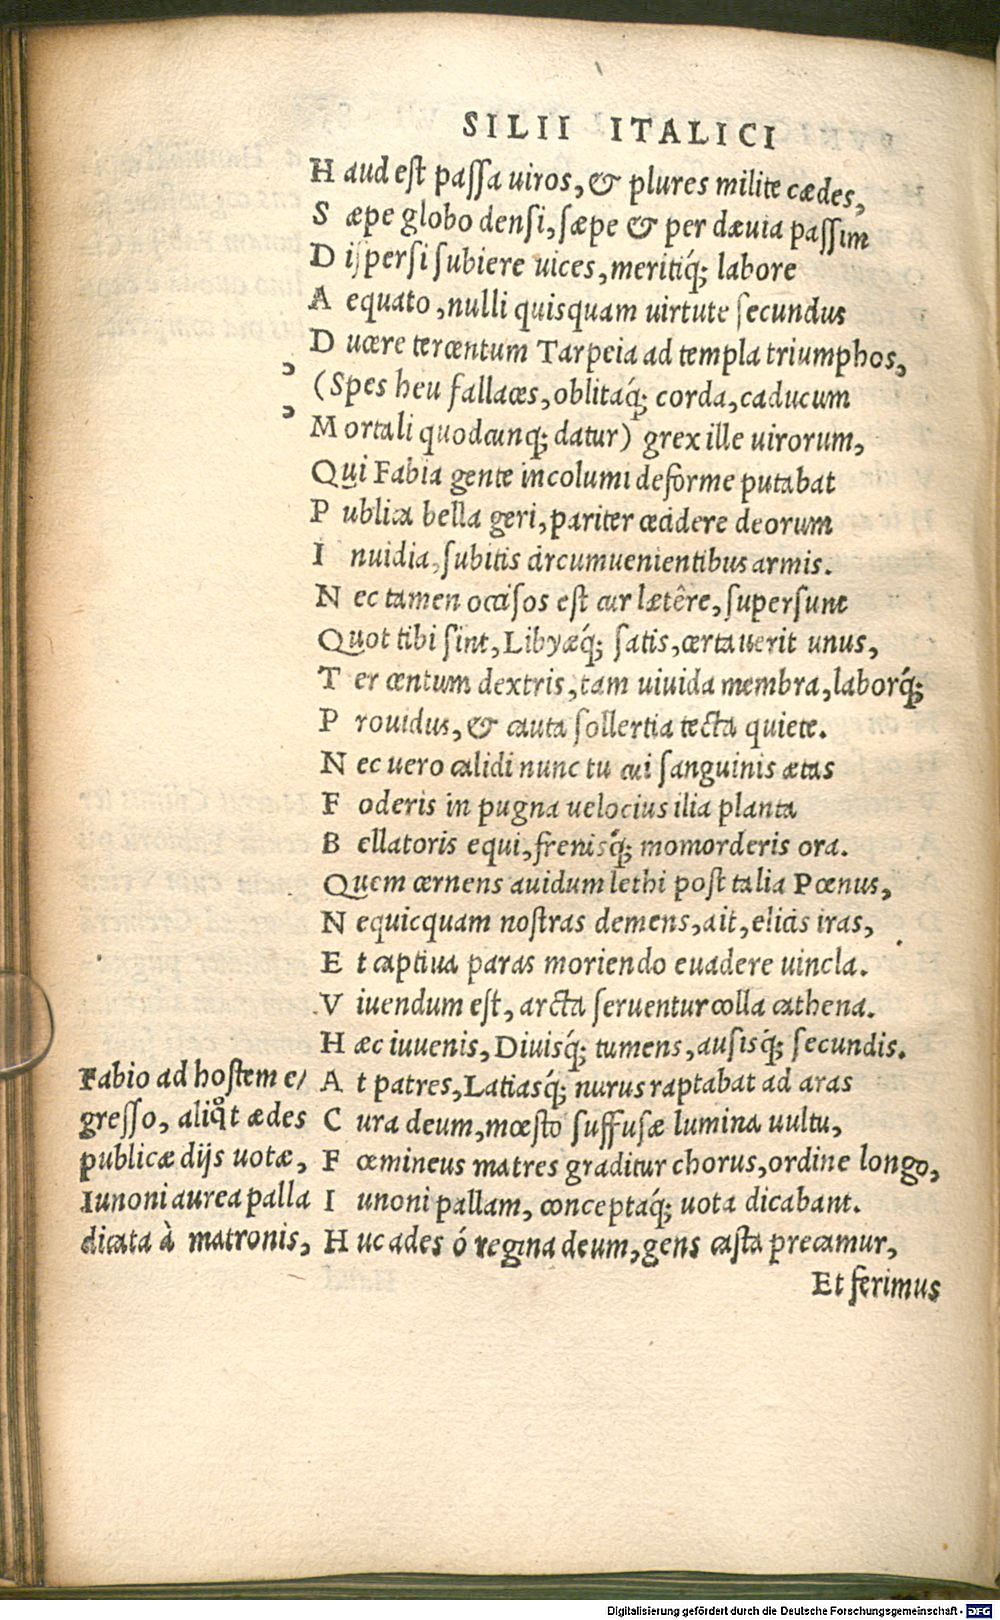 SILII ITALICI
Haud est passa uiros, & plures milite cædes,
Sæpe globo densi, sæpe & per dæuia passim
Dispersi subiere uices, meritiq́; labore
Aequato, nulli quisquam uirtute secundus
Ducere tercentum Tarpeia ad templa triumphos,
(Spes heu fallaces, oblitaq́; corda, caducum
Mortali quodcunq; datur) grex ille uirorum,
Qui Fabia gente incolumi deforme putabat
Publica bella geri, pariter cecidere deorum
Inuidia, subitis circumuenientibus armis.
Nec tamen occisos est cur lætêre, supersunt
Quot tibi sint, Libyæq́; satis, certauerit unus,
Ter centum dextris, tam uiuida membra, laborq́;
Prouidus, & cauta sollertia tecta quiete.
Nec uero calidi nunc tu cui sanguinis ætas
Foderis in pugna uelocius ilia planta
Bellatoris equi, frenisq́; momorderis ora.
Quem cernens auidum lethi post talia Pœnus,
Nequicquam nostras demens, ait, elicis iras,
Et captiua paras moriendo euadere uincla.
Viuendum est, arcta seruentur colla cathena.
Hæc iuuenis, Diuisq́; tumens, ausisq́; secundis.
At patres, Latiasq́; nurus raptabat ad aras
Cura deum, mœsto suffusæ lumina uultu,
Fœmineus matres graditur chorus, ordine longo,
Iunoni pallam, conceptaq́; uota dicabant.
Huc ades ó regina deum, gens casta precamur,
Et ferimus
Fabio ad hostem e/
gresso, aliqt ædes
publicæ dijs uotæ,
Iunoni aurea palla
dicata à matronis,
Digitalisierung gefördert durch die Deutsche Forschungsgemeinschaft - DFG